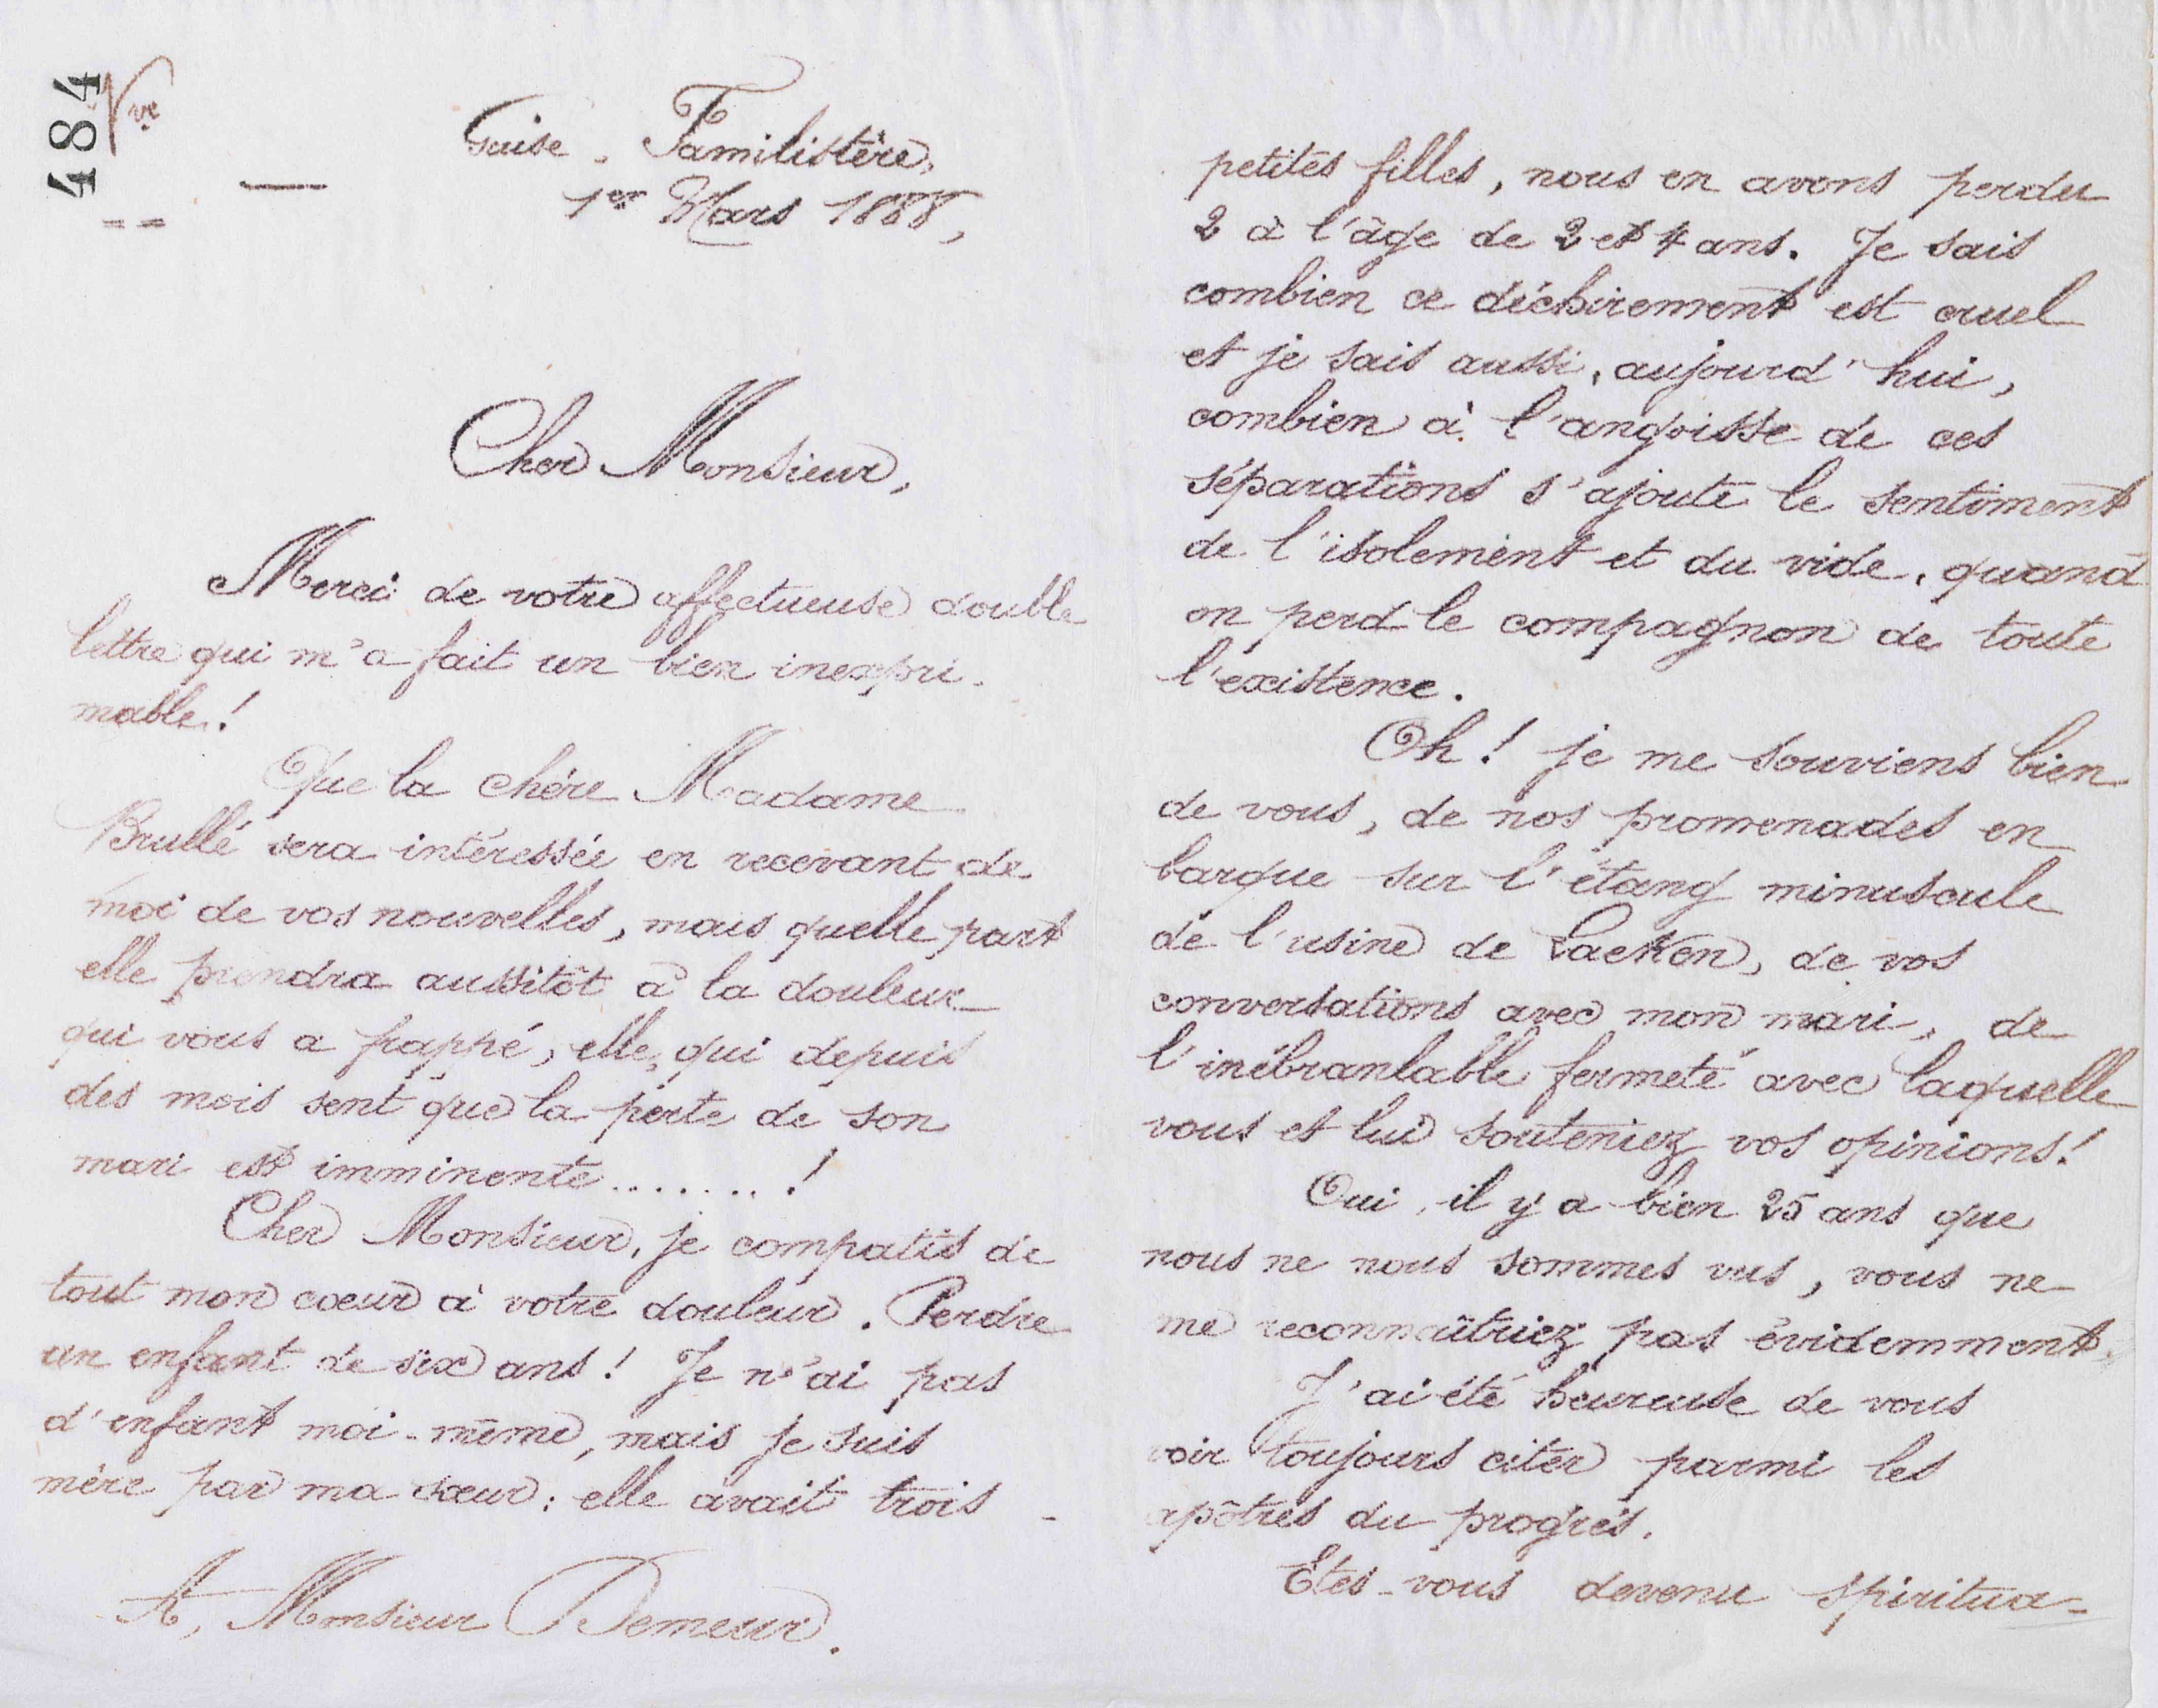 484
ve
Guise - Familistère,
1er Mars 1888,
Cher Monsieur,
Merci de votre affectueuse double
lettre qui m'a fait un bien inexpri-
mable !
Que la chère Madame
Brullé sera intéressée en recevant de
moi de vos nouvelles, mais quelle part
elle prendra aussitôt à la douleur
qui vous a frappé, elle, qui depuis
des mois sent que la perte de son
mari est imminente ....... !
Cher Monsieur, je compatis de
tout mon cœur à votre douleur. Perdre
un enfant de six ans ! Je n'ai pas
d'enfant moi-même, mais je suis
mère par ma sœur : elle avait trois
A, Monsieur Demeur.
petites filles, nous en avons perdu
2 à l'âge de 2 et 4 ans. Je sais
combien ce déchirement est cruel
et je sais aussi, aujourd'hui,
combien à l'angoisse de ces
séparations s'ajoute le sentiment
de l'isolement et du vide, quand
on perd le compagnon de toute
l'existence.
Oh ! je me souviens bien
de vous, de nos promenades en
barque sur l'étang minuscule
de l'usine de Laeken, de vos
conversations avec mon mari, de
l'inébranlable fermeté avec laquelle
vous et lui souteniez vos opinions !
Oui, il y a bien 25 ans que
nous ne nous sommes vus, vous ne
me reconnaîtriez pas évidemment.
J'ai été heureuse de vous
voir toujours citer parmi les
apôtres du progrès.
Etes-vous devenu spiritua-